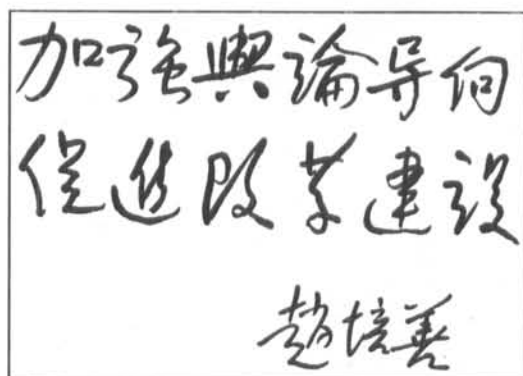 加强舆論导向
促进改革建设
趙培善